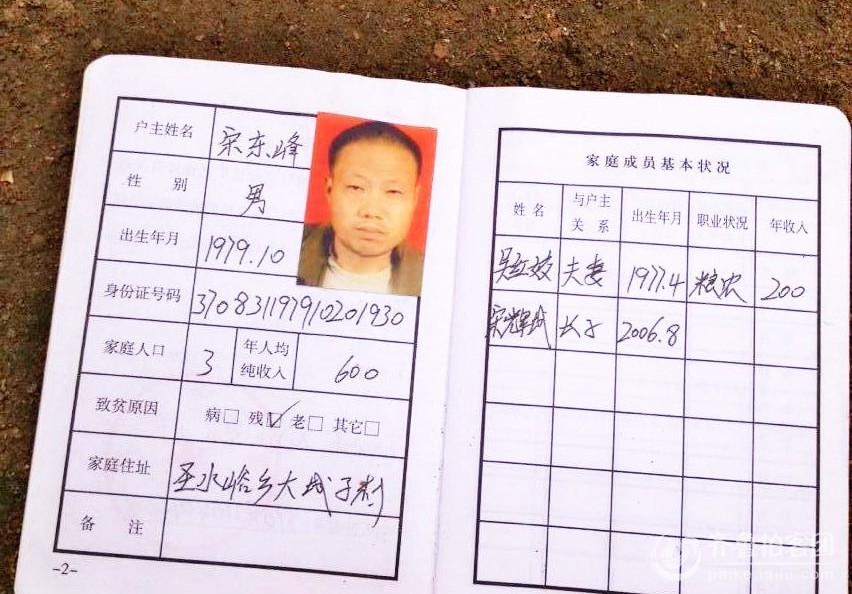 户主姓名 宋东峰
性 别 男
出生年月 1979.10
身份证号码 370831197910201930
家庭人口 3 年人均纯收入 600
致贫原因 病□ 残☑ 老□ 其它□
家庭住址 圣水峪乡大城子村
备 注
-2-
家庭成员基本状况
姓 名 与户主关 系 出生年月 职业状况 年收入
夫妻 1977.4 粮农 200
长子 2006.8
齐鲁拍客团